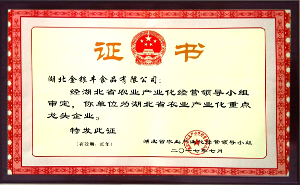 证书
湖北金银丰食品有限公司:
经湖北省农业产业化经营领导小组
审定,你单位为湖北省农业产业化重点
龙头企业。
特发此证
(有效期:贰年)
湖北省农业产业化经营领导小组
二〇一七年七月